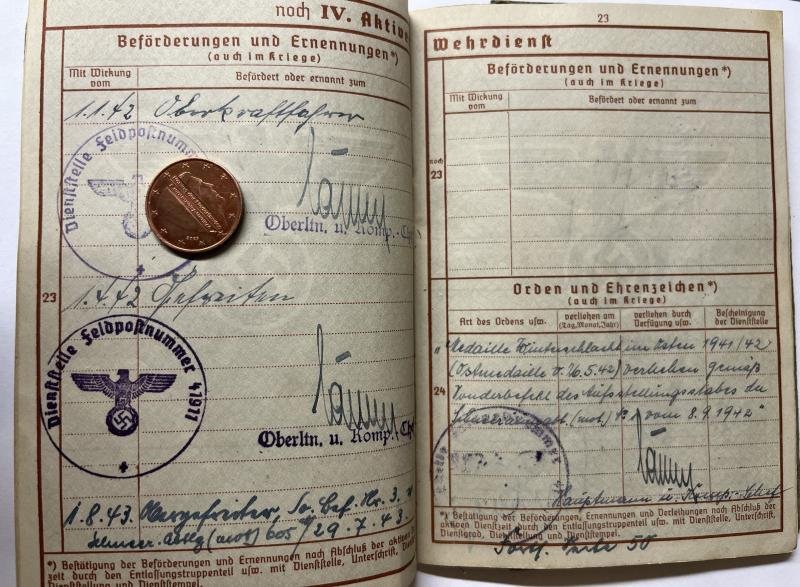 noch IV. Aktive
Beförderungen und Ernennungen*)
(auch im Kriege)
Mit Wirkung vom
Befördert oder ernannt zum
1.1.42 Oberkraftfahrer
Dienststelle Feldpostnummer
Oberltn. u. Komp.-Ch
23
1.4.42 Gefreiten
Dienststelle Feldpostnummer 41917
Oberltn. u. Komp.-Ch
1.8.43. Obergefreiter, Bef. Nr. 3.
(mot) 605 / 29.7.43.
*) Bestätigung der Beförderungen und Ernennungen nach Abschluß der aktiven
zeit durch den Entlassungstruppenteil usw. mit Dienststelle, Unterschrift,
Dienstgrad, Dienststellung und Dienststempel.
23
Wehrdienst
Beförderungen und Ernennungen*)
(auch im Kriege)
Mit Wirkung vom
Befördert oder ernannt zum
noch 23
Orden und Ehrenzeichen*)
(auch im Kriege)
Art des Ordens usw.
verliehen am (Tag, Monat, Jahr)
verliehen durch Verfügung usw.
Bescheinigung der Dienststelle
"Medaille Winterschlacht im Osten 1941/42
(Ostmedaille v. 26.5.42) verliehen gemäß
24
Sonderbefehl des Aufstellungsstabes der
(mot.) vom 8.9.1942"
Hauptmann u. Komp.-Chef
*) Bestätigung der Beförderungen, Ernennungen und Verleihungen nach Abschluß der
aktiven Dienstzeit durch den Entlassungstruppenteil usw. mit Dienststelle, Unterschrift,
Dienstgrad, Dienststellung und Dienststempel.
Forts. Seite 50